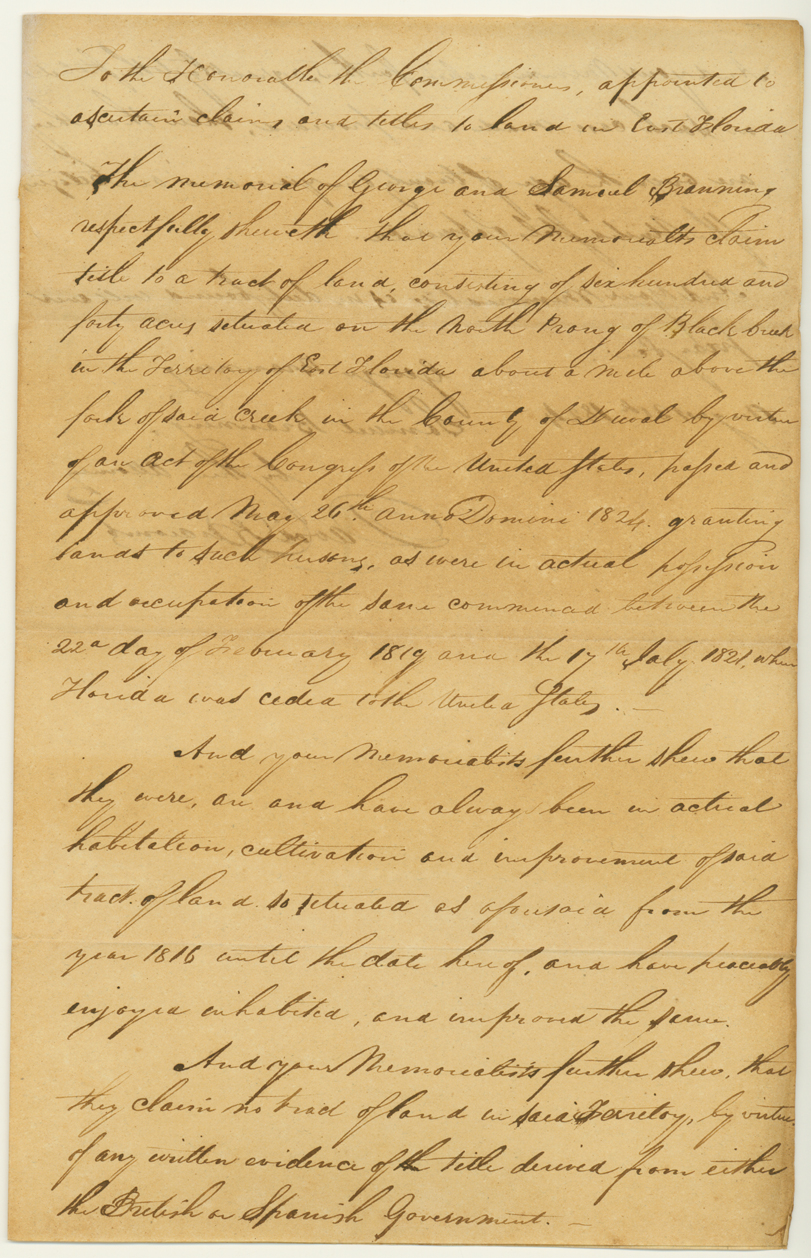 To the Honorable the Commissioners, appointed to
ascertain claims and titles to land in East Florida
The memorial of George and Samuel Branning
respectfully sheweth that your Memorialists claim
title to a tract of land, consisting of six hundred and
forty acres situated on the North Prong of Black Creek
in the Territory of East Florida about a mile above the
fork of said Creek in the County of Duval by virtue
of an Act of the Congress of the United States, passed and
approved May 26th. Anno Domini 1824. granting
lands to such persons, as were in actual possession
and occupation of the same commenced between the
22d day of February 1819 and the 17th July 1821, when
Florida was ceded to the United States. —
And your Memorialists further shew that
they were, are and have always been in actual
habitation, cultivation and improvement of said
tract of land so situated as aforesaid from the
year 1816 until the date hereof, and have peaceably
enjoyed inhabited, and improved the same.
And your Memorialists further shew, that
they claim no tract of land in said Territory, by virtue
of any written evidence of the title derived from either
the British or Spanish Government. —